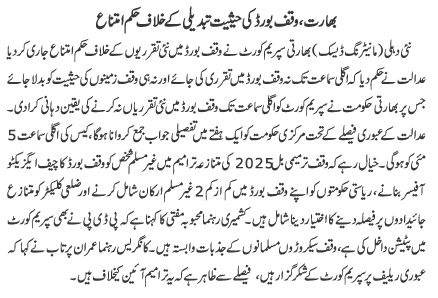 بھارت، وقف بورڈ کی حیثیت تبدیلی کے خلاف حکم امتناع
نئی دہلی (مانیٹرنگ ڈیسک) بھارتی سپریم کورٹ نے وقف بورڈ میں نئی تقرریوں کے خلاف حکم امتناع جاری کر دیا
عدالت نے حکم دیا کہ اگلی سماعت تک نہ وقف بورڈ میں تقرری کی جائے اور نہ ہی وقف زمینوں کی حیثیت کو بدلا جائے
جس پر بھارتی حکومت نے سپریم کورٹ کو اگلی سماعت تک وقف بورڈ میں نئی تقرریاں نہ کرنے کی یقین دہانی کرا دی۔
عدالت کے عبوری فیصلے کے تحت مرکزی حکومت کو ایک ہفتے میں تفصیلی جواب جمع کروانا ہوگا، کیس کی اگلی سماعت 5
مئی کو ہوگی۔ خیال رہے کہ وقف ترمیمی بل 2025 کی متنازعہ ترامیم میں غیر مسلم شخص کو وقف بورڈ کا چیف ایگزیکٹو
آفیسر بنانے، ریاستی حکومتوں کو اپنے وقف بورڈ میں کم از کم 2 غیر مسلم ارکان شامل کرنے اور ضلعی کلیکٹر کو متنازع
جائیدادوں پر فیصلہ دینے کا اختیار دینا شامل ہیں۔ کشمیری رہنما محبوبہ مفتی کا کہنا ہے کہ پی ڈی پی نے بھی سپریم کورٹ
میں پٹیشن داخل کی ہے، وقف سے کروڑوں مسلمانوں کے جذبات وابستہ ہیں۔ کانگریس رہنما عمران پرتاب نے کہا کہ
عبوری ریلیف پر سپریم کورٹ کے شکر گزار ہیں، فیصلے سے ظاہر ہے کہ یہ ترامیم آئین کیخلاف ہیں۔